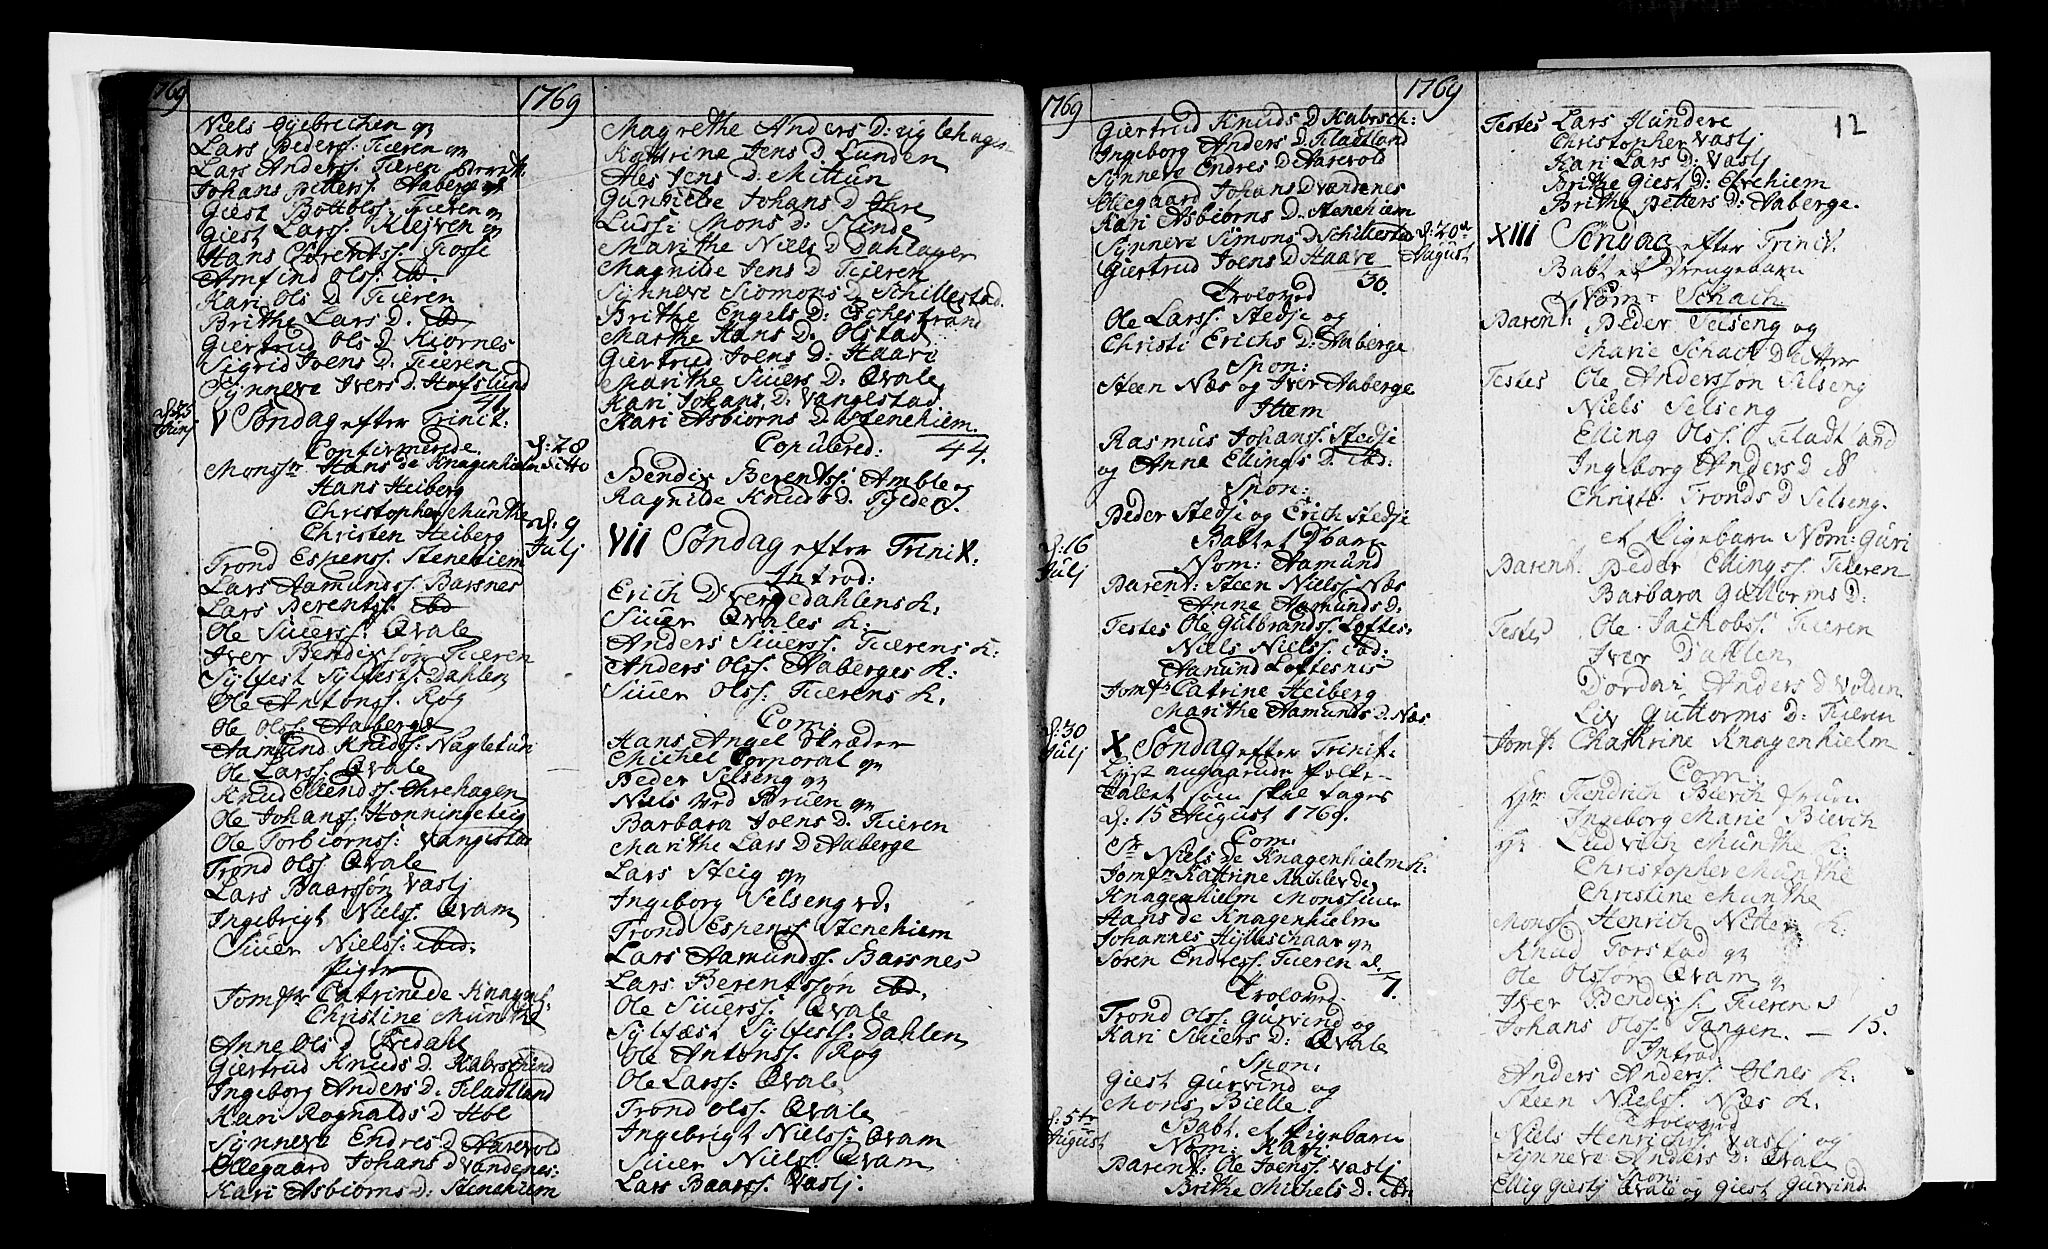 1769
Niels Gjebrechen og
Lars Peders: Fieren og
Lars Anderss: Fieren
Johans Petterss: Aaberge
Giest Bottols: Fieren og
Giest Larss: Klejven og
Hans Berentss:
Amfind Olss: ibd.
Kari Ols D. Fieren
Brithe Lars D. ibd
Giertrud Ols D. Kjørnes
Sigrid Joens D: Fieren
Synneve Ivers D: Hafslund
41.
V Søndag efter Trinit:
Confirmerede
Monssr Hans de Knagenhielm
Hans Heiberg
Christopher Munthe
Christen Heiberg
Trond Espenss: Stenehiem
Lars Aamundss: Barsnes
Lars Berentss: ibd
Ole Siuerss: Qvale
Iver Bendixsøn Fieren
Sylfest Sylfests: Dahlen
Ole Antonss. Røg
Ole Olss: Aaberge
Aamund Knudss: Nagletun
Ole Larss: Qvale
Knud Ellendss: Ohrehagen
Ole Johanss: Honningetvig
Ole Torbiornss: Vangestad
Trond Olss. Qvale
Lars Baarssøn Vaslj
Ingebrigt Nielss: Qvam
Siuer Nielss: ibid:
Piger
Jomfr Catrine de Knagenh
Christine Munthe
Anne Ols D Fredahl
Giertrud Knuds D. Kalvschind
Ingeborg Anders D: Fladtland
Kari Rognalds D Hol
Synneve Endres D Aarevold
Ollegaard Johans D Vandenes:
Kari Asbiorns D: Stenehiem
1769
Magrethe Anders D:
Kattrine Jens D. Lunden
Jens D. Mittun
Gunnilde Johans D Ohre
Lussi Mons D: Slinde
Marithe Niels D Dahlager
Magnilde Jens D Fieren
Synneve Siomons D Schillestad.
Brithe Engels D: Eschestrand
Marthe Hans D: Olstad
Giertrud Joens D: Haave
Marithe Siuers D: Qvale
Kari Johans D: Vangestad
Kari Asbiorns D Stenehiem.
44.
D: 28
ditto
Copulered:
Bendix Berentss: Amble og
Ragnilde Knuds D. Fjede
D: 9
Julj
VII Søndag efter Trinit:
Introd:
Erich Dvergedahlens K.
Siuer Qvales K:
Anders Siuerss: Fierens K:
Anders Olss. Aaberges K:
Siuer Olss: Fierens K.
Com:
Hans Angel Skræder
Michel Corporal og
Peder Selseng og
Niels ved Bruen og
Barbara Joens D. Fieren
Marithe Lars D Aaberge
Lars Steig og
Ingeborg Selseng
Trond Espens: Stenehiem
Lars Aamundss. Barsnes
Lars Berentssøn ibd.
Ole Siuerss: Qvale
Sylfæst Sylfests: Dahlen
Ole Antonss. Røg
Ole Larss: Qvale
Trond Olss. Qvale
Ingebrigt Nielss: Qvam
Siuer Nielss: Qvam
Lars Baarss. Vaslj.
1769
Giertrud Knuds D Kalvsch:
Ingeborg Anders D Fladtland
Synneve Endres D Aarevold
Ollegaard Johans D Vandenes
Kari Asbiorns D: Stenehiem
Synneve Simons D Schillestad
Giertrud Joens D Haave
30.
Troloved
Ole Larss. Stedje og
Christi Erichs D: Aaberge
Spon:
Steen Næs og Iver Aaberge
Item
Rasmus Johanss: Stedje
og Anne Ellings D. ibd:
Spon:
Peder Stedje og Erich Stedje
D: 16
Julj
Babt et D:barn
Nom: Aamund
Parent: Steen Nielss Næs
Anne Aamunds D:
Testes Ole Gulbrandss. Loftes:
Niels Nielss. ibd:
Aamund Loftesnes
Jomfr Catrine Heiberg
Marithe Aamunds D. Næs
D: 30
Julj
X Søndag efter Trinit:
Lyst angaaende folke-
Talent som skal tages
d: 15 August 1769.
Com:
Sr Niels de Knagenhielm K:
Jomfr Kattrine
Knagenhielm Monssieur
Hans de Knagenhielm
Johannes Hylleschaar og
Soren Endress: Fieren
7.
Troloved.
Trond Olss. Gurvind og
Kari Siuers D: Qvale
Spon:
Giest Gurvind og
Mons Bielle.
D: 5te
August
Babt. et Pigebarn
Nom: Kari
Parent: Ole Joenss. Vaslj
Brithe Michels D. ibn
1769
12
Testes Lars Hundere
Christopher Vaslj
Kari Lars D: Vaslj
Brithe Giest D: Etrehiem
Brithe Petters D: Aaberge.
D: 20de
August
XIII Søndag efter Trinit.
Babt et Drengebarn
Nom: Schach
Parent: Peder Selseng og
Marie Schach Ditter
Testes Ole Anderssøn Selseng
Niels Selseng
Elling Olss. Fladtland
Ingeborg Anders D
Christi Tronds D Selseng.
et Pigebarn Nom: Guri
Parent: Peder Ellingss Fieren
Barbara Guttorms D:
Testes Ole Jachobss. Fieren
Iver Dahlen
Dordai Anders D Volden
Liv Guttorms D: Fieren
Jomfr: Chatrine Knagenhielm
Com.
Hr Fiendrich Bierch
Ingeborg Marie Bierch
Hr Ludvich Munthe K:
Christopher Munthe
Christine Munthe
Monss: Henrich Netter K:
Knud Torstad og
Ole Olssøn Qvam og
Iver Bendixs. Fieren
Johans Olss. Tangen. — 15.
Introd
Anders Anderss. Olnes K:
Steen Nielss Næs K.
Troloved
Niels Henrichss Vaslj og
Synneve Anders D: Qvale
Spon:
Ellig Giestj Qvale og Giest Gurvind